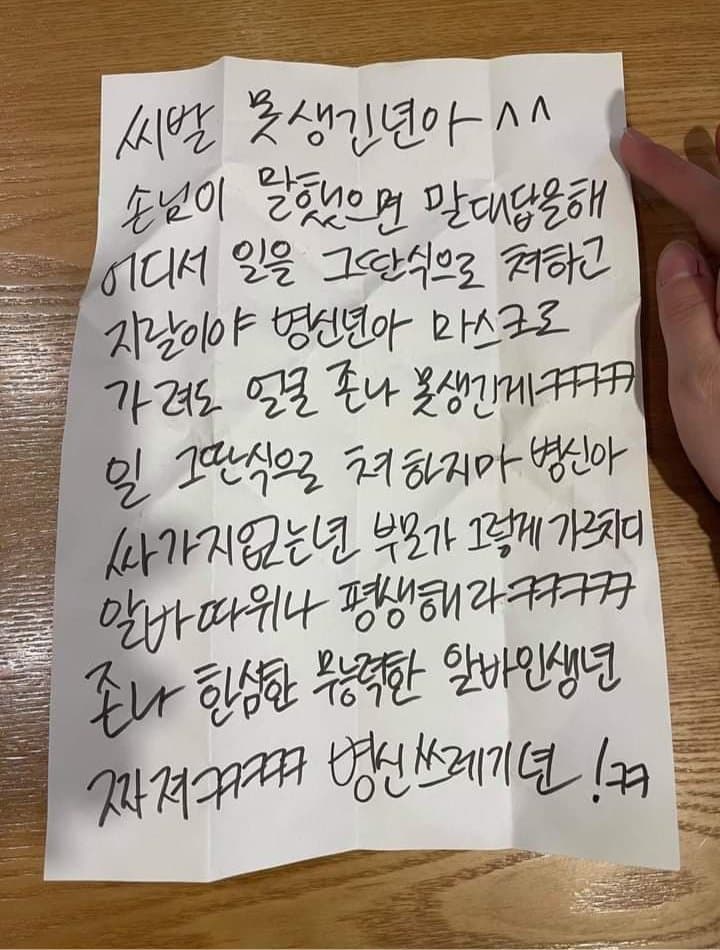 씨발 못생긴년아 ^^
손님이 말했으면 말대답을해
어디서 일을 그딴식으로 쳐하고
지랄이야 병신년아 마스크로
가려도 얼굴 존나 못생긴게ㅋㅋㅋㅋ
일 그딴식으로 쳐 하지마 병신아
싸가지없는년 부모가 그렇게 가르치디
알바따위나 평생해라ㅋㅋㅋㅋ
존나 한심한 무능력한 알바인생년
꺼져ㅋㅋㅋㅋ 병신쓰레기년!ㅋㅋ